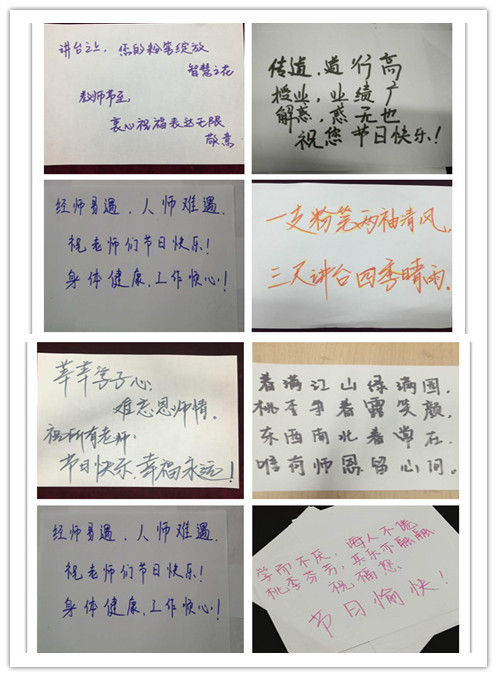 讲台之上，您的粉笔绽放
智慧之花
教师节至，
衷心祝福表达无限
敬意
传道，道行高
授业，业绩广
解惑，惑无也
祝您节日快乐！
经师易遇，人师难遇，
祝老师们节日快乐！
身体健康，工作快心！
一支粉笔两袖清风，
三尺讲台四季晴雨。
莘莘学子心，
难忘恩师情。
祝所有老师
节日快乐，幸福永远！
春满江山绿满园，
桃李争春露笑颜，
东西南北春常在
唯有师恩留心间。
经师易遇，人师难遇，
祝老师们节日快乐！
身体健康，工作快心！
学而不厌，诲人不倦
桃李芬芳，其乐亦融融
祝福您
节日愉快！